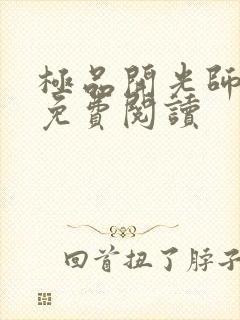 極品開光師
免費閱讀
回首扭了脖子